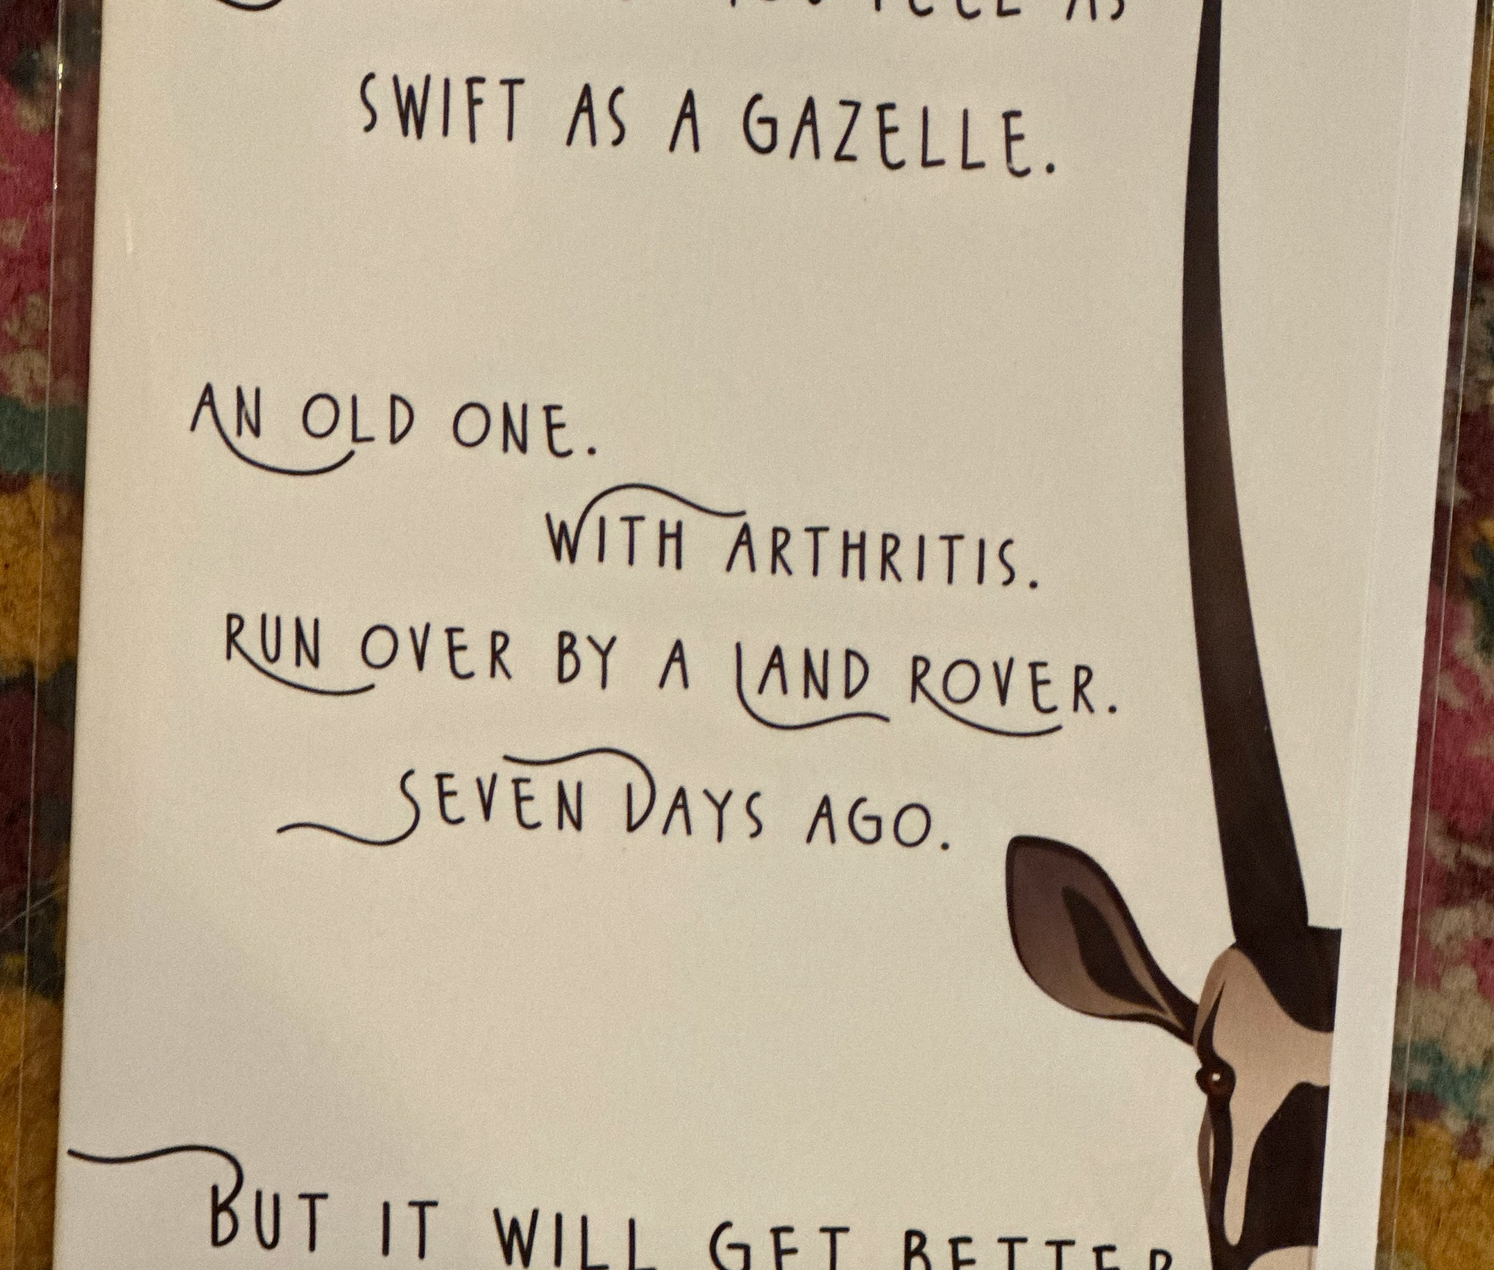 YOU FEEL AS
SWIFT AS A GAZELLE.
AN OLD ONE.
WITH ARTHRITIS.
RUN OVER BY A LAND ROVER.
SEVEN DAYS AGO.
BUT IT WILL GET BETTER